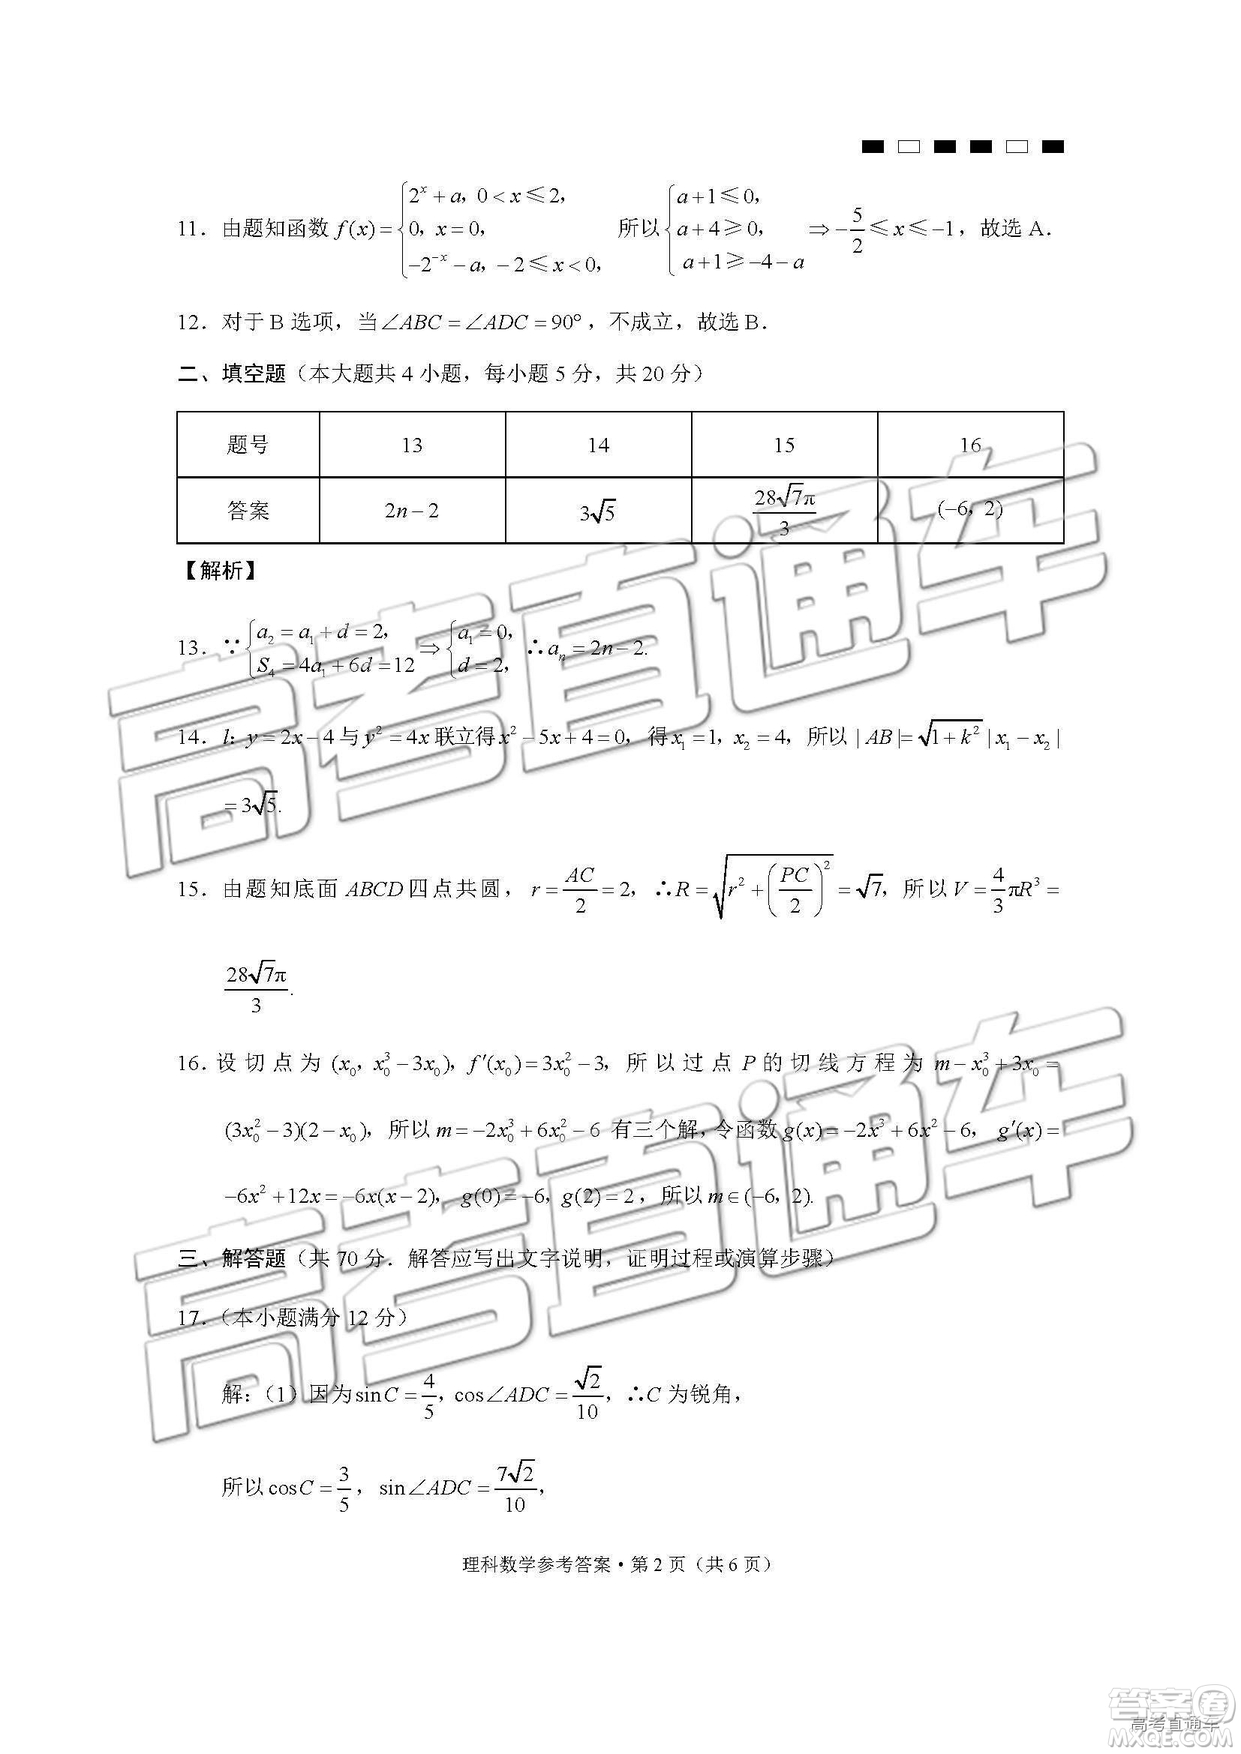 11．由题知函数 f(x)={2^x+a，0<x≤2，0，x=0，−2^{−x}−a，−2≤x<0， 所以{a+1≤0，a+4≥0，a+1≥−4−a ⇒−5/2≤x≤−1，故选 A．
12．对于 B 选项，当∠ABC=∠ADC=90°，不成立，故选 B．
二、填空题（本大题共 4 小题，每小题 5 分，共 20 分）
题号 13 14 15 16
答案 2n−2 3√5 28√7π/3 (−6，2)
【解析】
13．∵{a₂=a₁+d=2，S₄=4a₁+6d=12 ⇒{a₁=0，d=2，∴aₙ=2n−2.
14．l：y=2x−4 与 y²=4x 联立得 x²−5x+4=0，得 x₁=1，x₂=4，所以 |AB|=√(1+k²)|x₁−x₂|
=3√5.
15．由题知底面 ABCD 四点共圆，r=AC/2=2，∴R=√(r²+(PC/2)²)=√7，所以 V=4/3πR³=
28√7π/3.
16．设切点为 (x₀，x₀³−3x₀)，f′(x₀)=3x₀²−3，所以过点 P 的切线方程为 m−x₀³+3x₀=
(3x₀²−3)(2−x₀)，所以 m=−2x₀³+6x₀²−6 有三个解，令函数 g(x)=−2x³+6x²−6，g′(x)=
−6x²+12x=−6x(x−2)，g(0)=−6，g(2)=2，所以 m∈(−6，2).
三、解答题（共 70 分．解答应写出文字说明，证明过程或演算步骤）
17．（本小题满分 12 分）
解：（1）因为 sinC=4/5，cos∠ADC=√2/10，∴C 为锐角，
所以 cosC=3/5，sin∠ADC=7√2/10，
理科数学参考答案·第 2 页（共 6 页）
高考直通车
高考直通车
答案卷
高考直通车
MXQE.COM